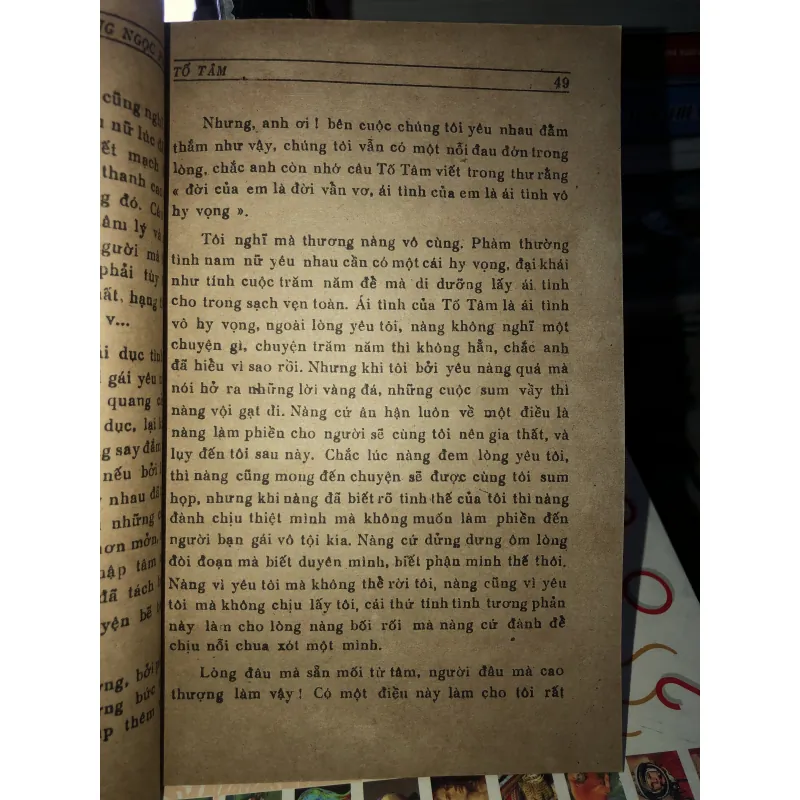 NG NGỌC
cũng ngh
nữ lúc đ
ết mạch
thanh cao
g đó. Cá
âm lý và
gười mà
phải tùy
ất, hạng
v...
ái dục tìn
gái yêu
quang c
dục, lại
g say đắm
nếu bởi
y nhau đã
những c
hơn mởn,
hập tâm
đã tách
yện bẽ
ng, bởi
ng bức
p thêm
TỐ TÂM
49
Nhưng, anh ơi ! bên cuộc chúng tôi yêu nhau đằm
thắm như vậy, chúng tôi vẫn có một nỗi đau đớn trong
lòng, chắc anh còn nhớ câu Tố Tâm viết trong thư rằng
« đời của em là đời vẩn vơ, ái tình của em là ái tình vô
hy vọng ».
Tôi nghĩ mà thương nàng vô cùng. Phàm thường
tình nam nữ yêu nhau cần có một cái hy vọng, đại khái
như tính cuộc trăm năm để mà di dưỡng lấy ái tình
cho trong sạch vẹn toàn. Ái tình của Tố Tâm là ái tình
vô hy vọng, ngoài lòng yêu tôi, nàng không nghĩ một
chuyện gì, chuyện trăm năm thì không hẳn, chắc anh
đã hiểu vì sao rồi. Nhưng khi tôi bởi yêu nàng quá mà
nói hở ra những lời vàng đá, những cuộc sum vầy thì
nàng vội gạt đi. Nàng cứ ân hận luôn về một điều là
nàng làm phiền cho người sẽ cùng tôi nên gia thất, và
lụy đến tôi sau này. Chắc lúc nàng đem lòng yêu tôi,
thì nàng cũng mong đến chuyện sẽ được cùng tôi sum
họp, nhưng khi nàng đã biết rõ tình thế của tôi thì nàng
đành chịu thiệt mình mà không muốn làm phiền đến
người bạn gái vô tội kia. Nàng cứ dửng dưng ôm lòng
đòi đoạn mà biết duyên mình, biết phận mình thế thôi.
Nàng vì yêu tôi mà không thể rời tôi, nàng cũng vì yêu
tôi mà không chịu lấy tôi, cái thứ tính tình tương phản
này làm cho lòng nàng bối rối mà nàng cứ đành để
chịu nỗi chua xót một mình.
Lòng đâu mà sẵn mối từ tâm, người đâu mà cao
thượng làm vậy ! Có một điều này làm cho tôi rất